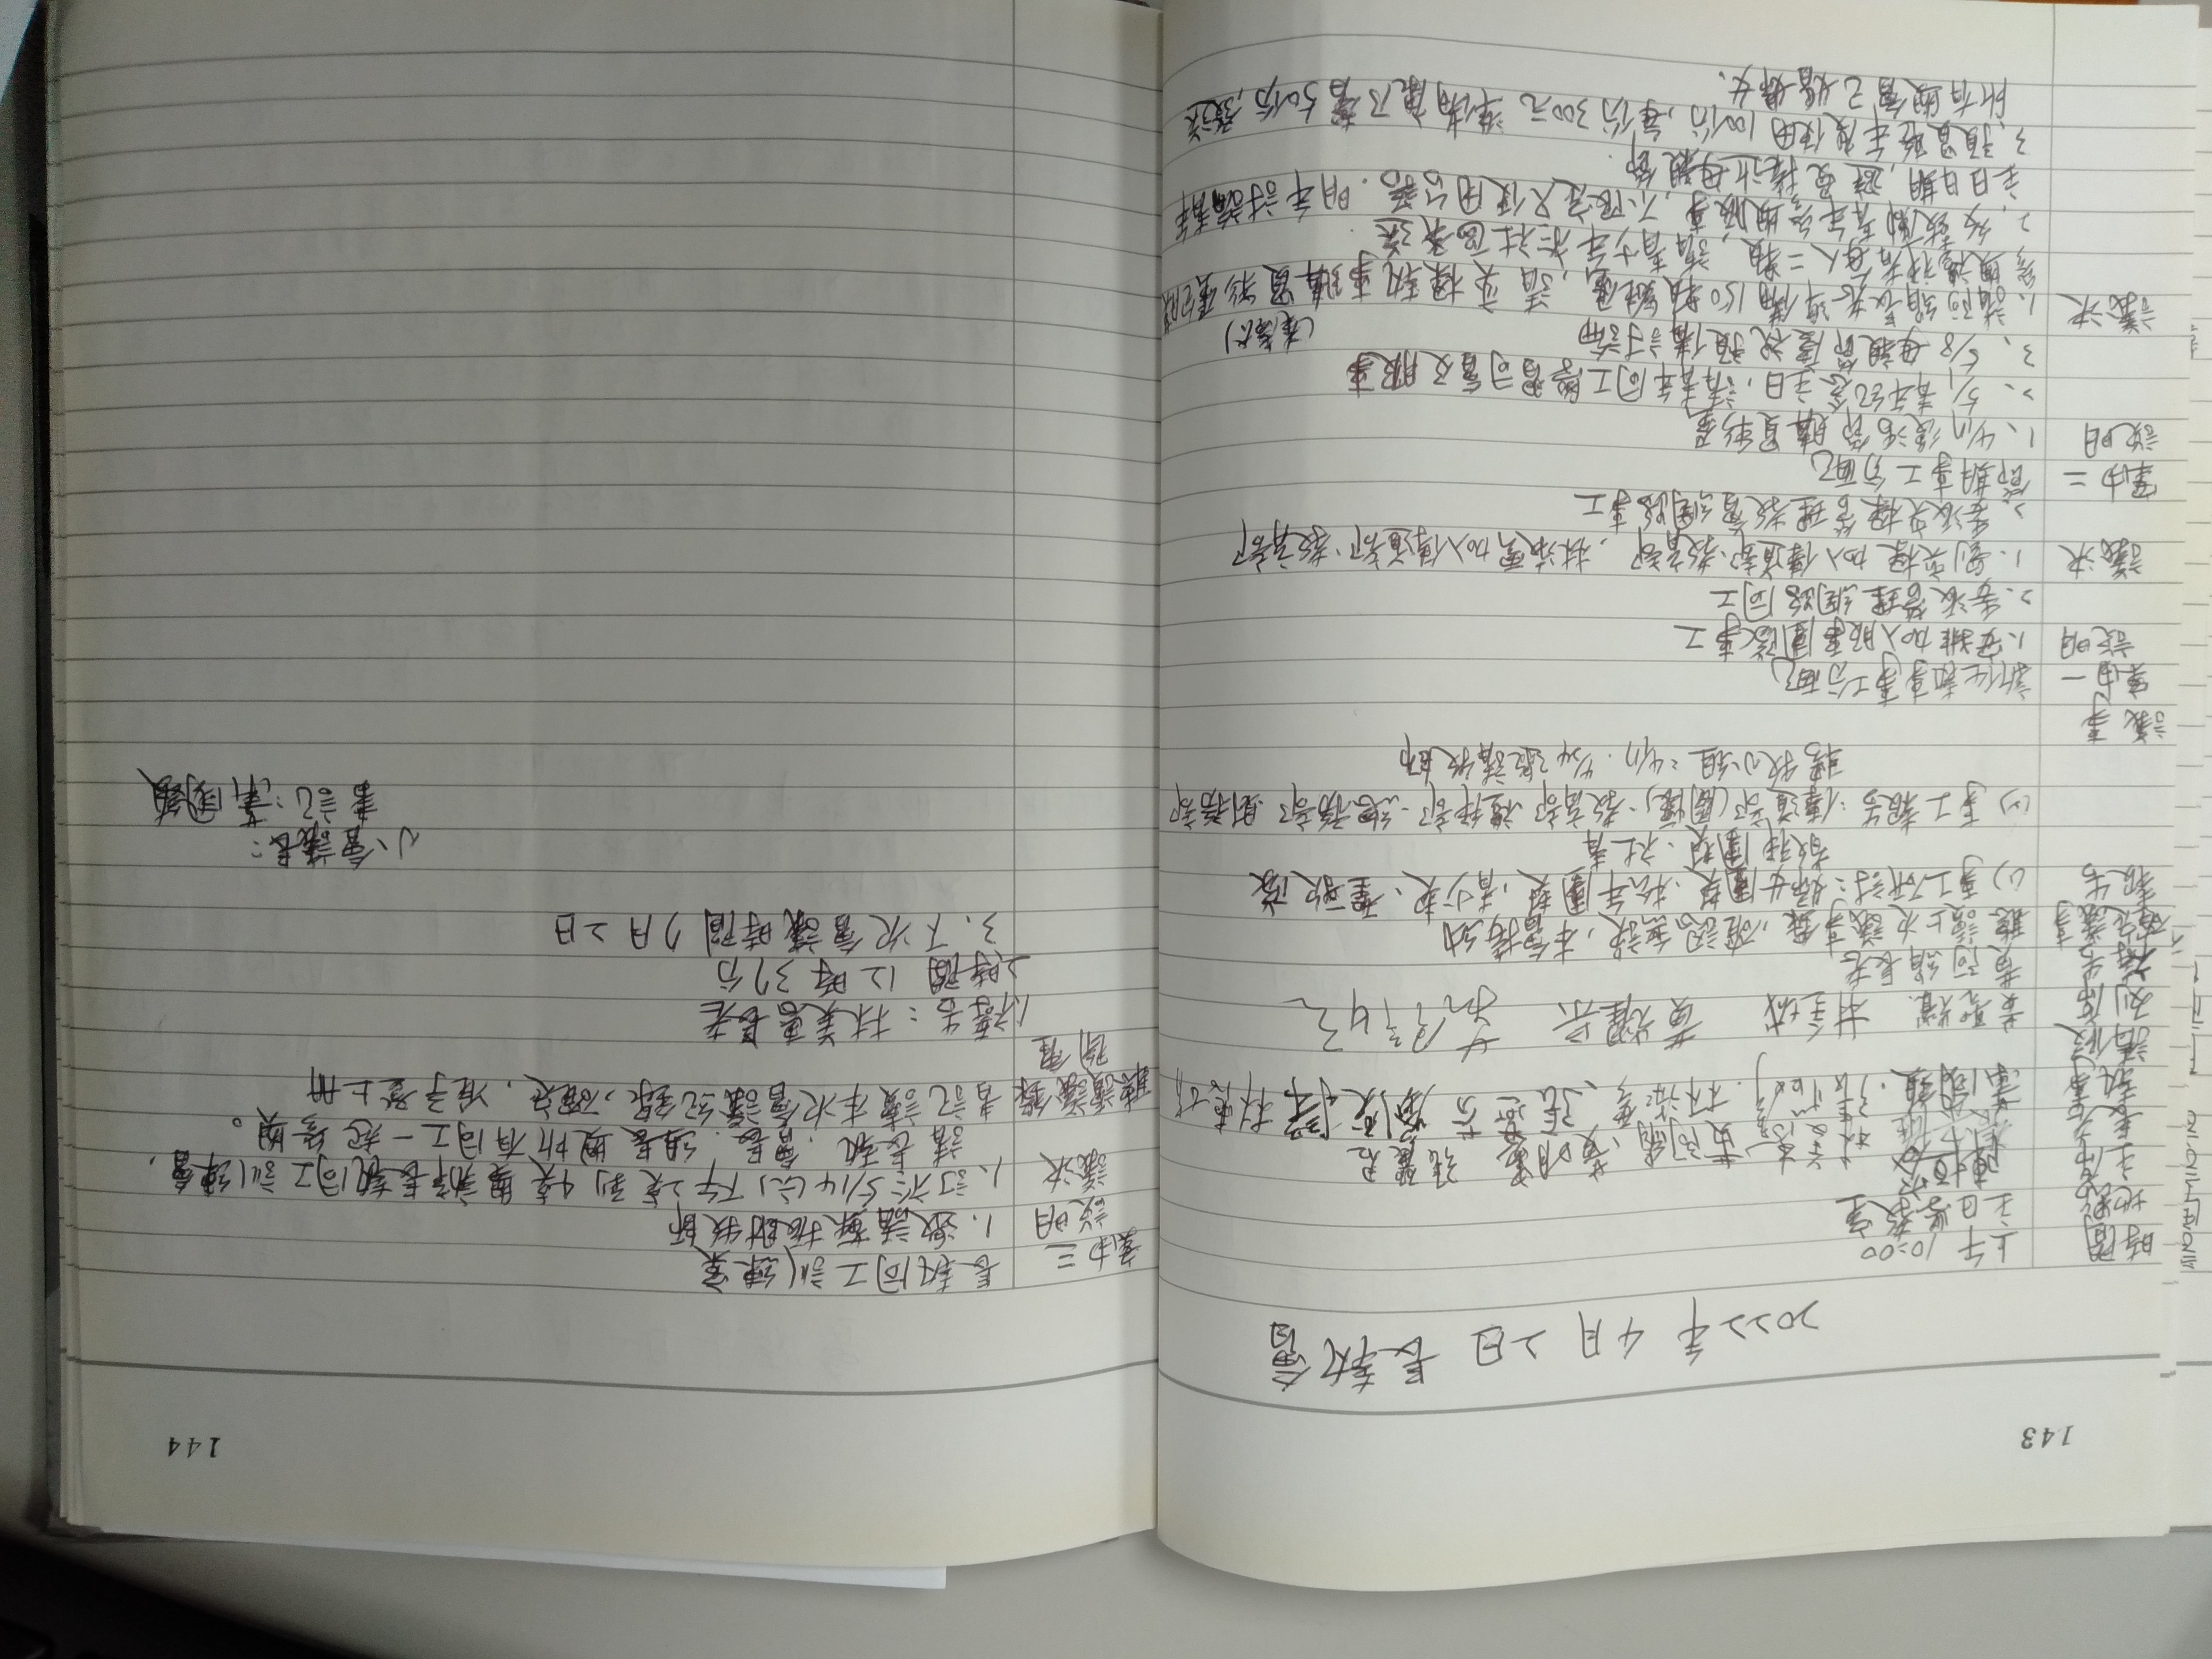 143
2022年 4月 2日 長執會
時間 上午 10:00
地點 主日學教室
主席 陳恒容
長老 林美惠 黃阿絹、黃明 張麗君
執事 蕭國鎮、張 、林淑雲、張燕芬 劉奕樑 林惠娟
請假
列席 黃聖耀 林金城 黃耀宗
禱告 黃阿絹長老
確定議事 聽讀上次議事錄,確認無誤,本會接納
報告 (1) 事工研討:婦女團契、松年團契、青少契、聖歌隊
敬拜團契、社青
(2) 事工報告:傳道部(關懷)、教育部、禮拜部、總務部、財務部
聘牧小組:4/17、4/24邀請牧師
議事
案由一 新任執事事工分配
說明 1、安排加入服事團隊事工
2、委派管理網路同工
議決 1、劉奕樑加入傳道部、教育部,林淑雲加入傳道部、教育部
2、委派奕樑管理教會網路事工
案由二 節期事工分配
說明 1、4/17復活節購買彩蛋
2、5/1青年紀念主日,請青年同工學習司會及服事
3、5/8 母親節慶祝預備討論
議決 1、請阿絹長老準備150顆雞蛋,請奕樑執事購買彩蛋包膜
參與禮拜者每人二顆,請青少年於社區發送.
2、多鼓勵青年參與服事,不限定只使用台語.明年討論青年
主日日期,避免接近母親節.
3、預買整年度使用100份,每份300元 準備康乃馨50份,發送
所有與會已婚婦女、
144
案由三 長執同工訓練案
說明 1、邀請蘇振財牧師
議決 1、訂於5/14(六)下午2點到4點舉辦長執同工訓練會,
請長執、會長、組長與所有同工一起參與。
聽讀議錄 書記讀本次會議紀錄,確定,准予登上冊
閉會
1、禱告:林美惠長老
2、時間 12時37分
3、下次會議時間7月2日
小會議長:
書記:蕭國鎮